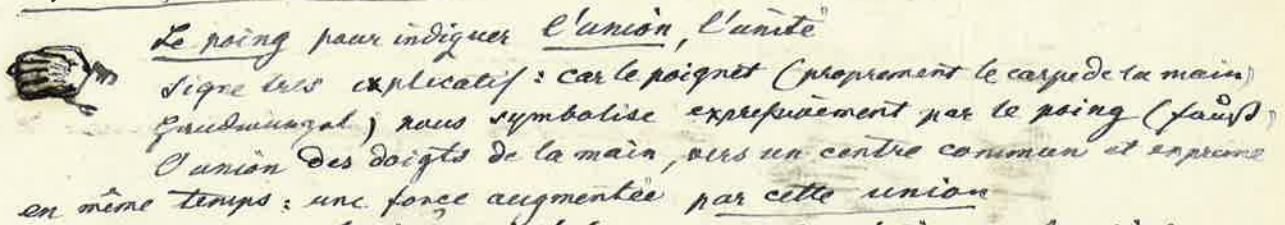 Le poing pour indiquer l'union, l'unité
signe très explicatif : car le poignet (proprement le carpe de la main
) nous symbolise expressivement par le poing (faust)
l'union des doigts de la main, vers un centre commun et exprime
en même temps : une force augmentée par cette union